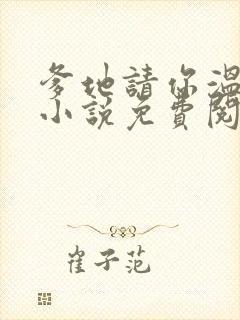 爹地請你溫
小說免費閱
崔子范